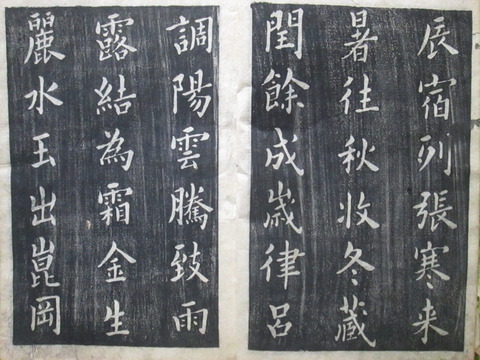 辰宿列張寒来
暑往秋收冬蔵
閏餘成嵗律吕
調陽雲騰致雨
露結為霜金生
麗水玉出崑岡